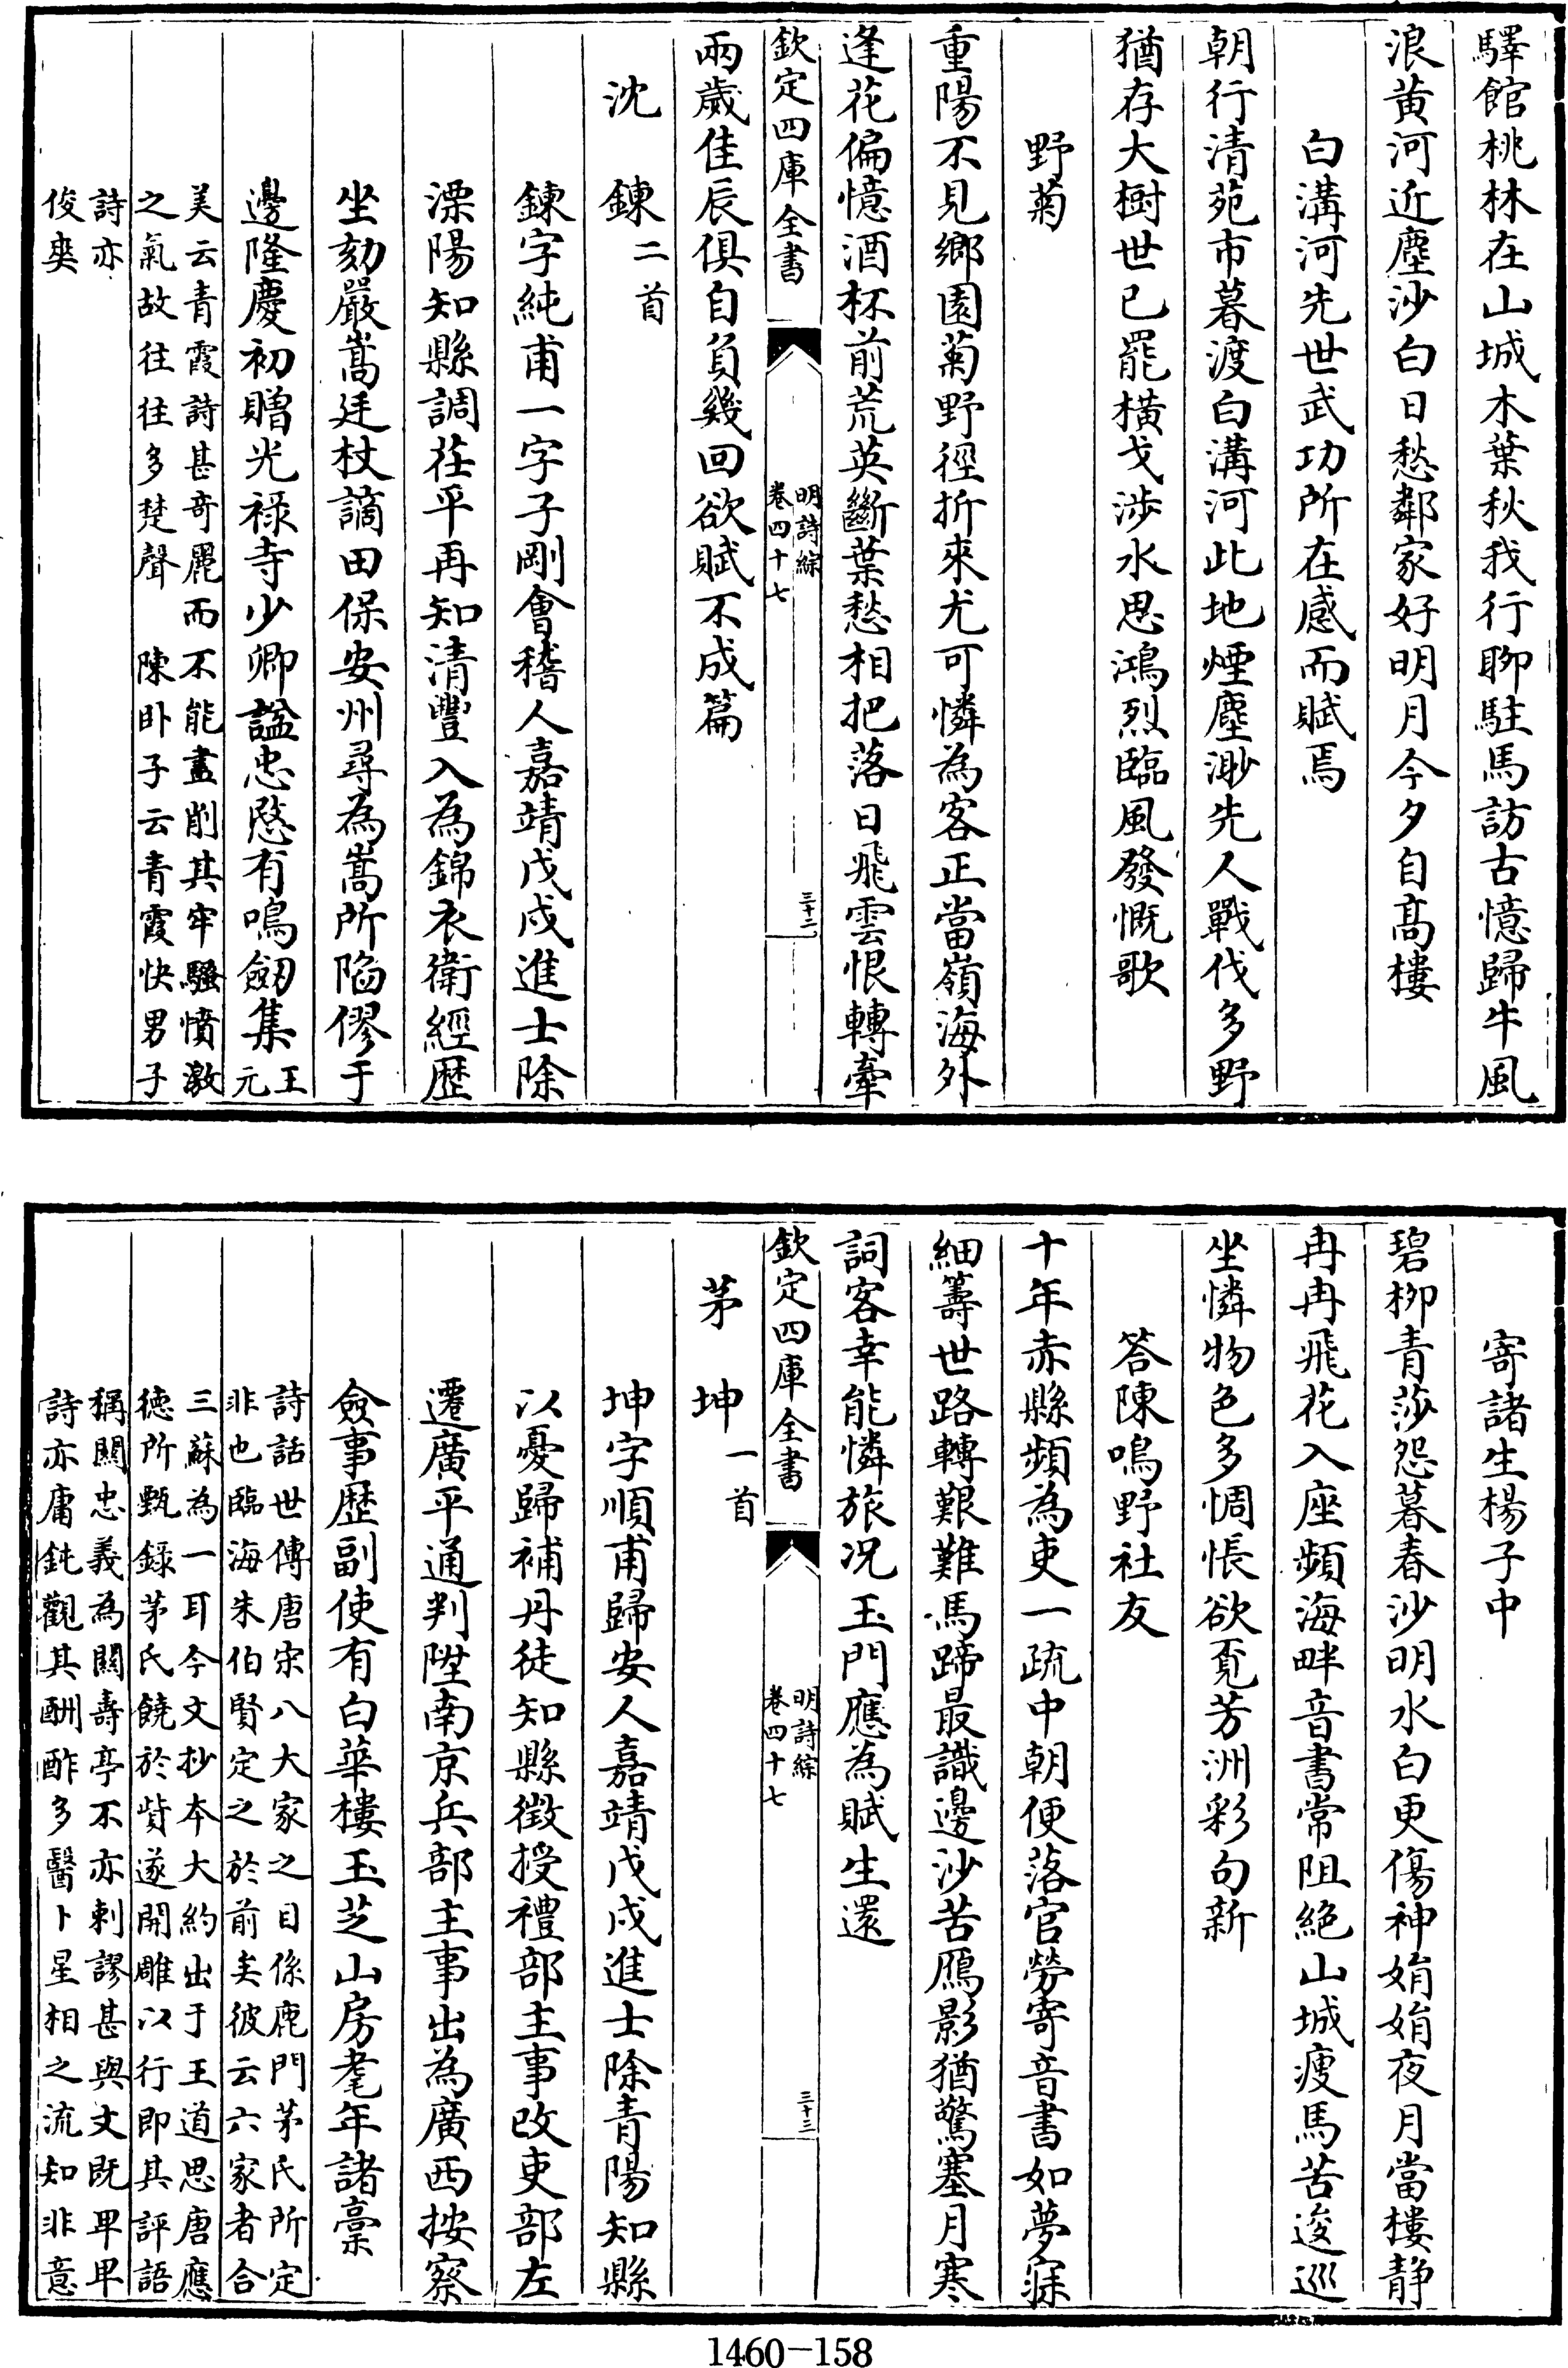 驛館桃林在山城木葉秋我行聊駐馬訪古憶歸牛風
浪黃河近塵沙白日愁鄰家好明月今夕自髙樓
白溝河先世武功所在感而賦焉
朝行清苑市暮渡白溝河此地煙塵渺先人戰伐多野
猶存大樹世已罷橫戈涉水思鴻烈臨風發慨歌
野菊
重陽不見鄉園菊野徑折來尤可憐為客正當嶺海外
逢花偏憶酒杯前荒英斷葉愁相把落日飛雲恨轉牽
欽定四庫全書
明詩綜
卷四十七
三十二
兩歲佳辰俱自負幾回欲賦不成篇
沈鍊二首
鍊字純甫一字子剛會稽人嘉靖戊戌進士除
溧陽知縣調茌平再知清豐入為錦衣衛經歴
坐劾嚴嵩廷杖謫田保安州尋為嵩所陷僇于
邊隆慶初贈光祿寺少卿諡忠愍有鳴劒集王
元
美云青霞詩甚奇麗而不能盡削其牢騷憤激
之氣故往往多楚聲　陳卧子云青霞快男子
詩亦
俊爽
寄諸生楊子中
碧柳青莎怨暮春沙明水白更傷神娟娟夜月當樓靜
冉冉飛花入座頻海畔音書常阻絶山城瘦馬苦逡巡
坐憐物色多惆悵欲覓芳洲彩句新
答陳鳴野社友
十年赤縣頻為吏一疏中朝便落官勞寄音書如夢寐
細籌世路轉艱難馬蹄最識邊沙苦鴈影猶驚塞月寒
詞客幸能憐旅况玉門應為賦生還
欽定四庫全書
明詩綜
卷四十七
三十三
茅坤一首
坤字順甫歸安人嘉靖戊戌進士除青陽知縣
以憂歸補丹徒知縣徴授禮部主事改吏部左
遷廣平通判陞南京兵部主事出為廣西按察
僉事歴副使有白華樓玉芝山房耄年諸稾
詩話世傳唐宋八大家之目係鹿門茅氏所定
非也臨海朱伯賢定之於前矣彼云六家者合
三蘇為一耳今文抄本大約出于王道思唐應
德所甄録茅氏饒於貲遂開雕以行即其評語
稱關忠義為關壽亭不亦刺謬甚與文既卑卑
詩亦庸鈍觀其酬酢多醫卜星相之流知非意
1460-158